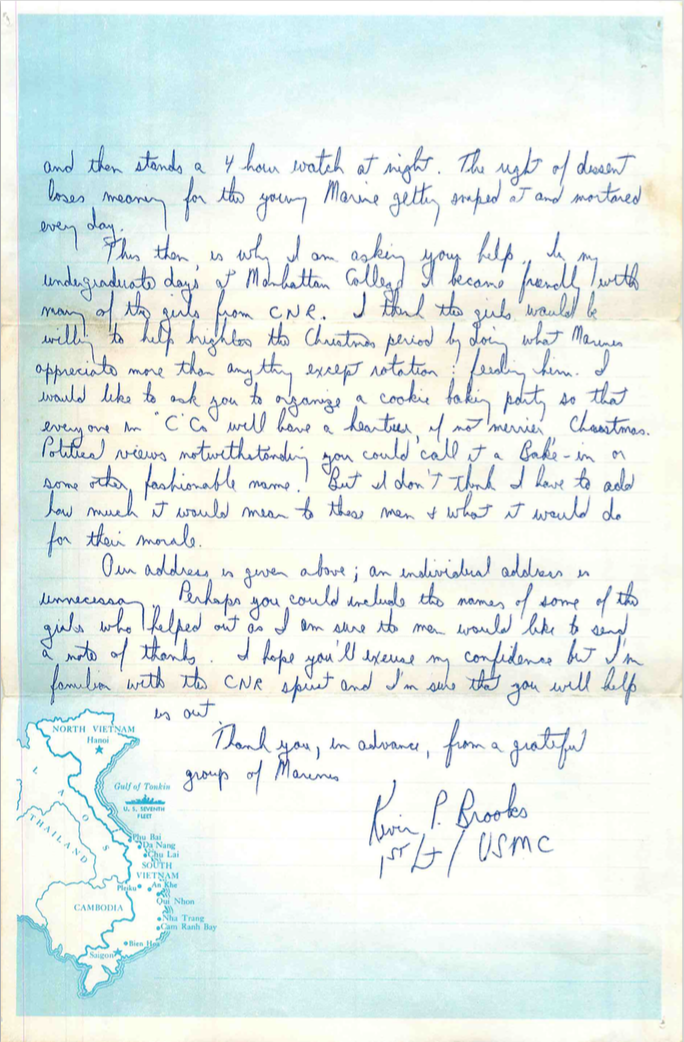 and then stands a 4 hour watch at night. The right of dissent
loses meaning for the young Marine getting sniped at and mortared
every day.
This then, is why I am asking your help. In my
undergraduate days at Manhattan College I became friendly with
many of the girls from CNR. I think the girls would be
willing to help brighten the Christmas period by doing what Marines
appreciate more than anything except rotation: feeding him. I
would like to ask you to organize a cookie baking party so that
everyone in "C" Co will have a heartier, if not merrier Christmas.
Political views notwithstanding you could call it a Bake-in or
some other fashionable name. But I don't think I have to add
how much it would mean to these men & what it would do
for their morale.
Our address is given above; an individual address is
unnecessary. Perhaps you could include the names of some of the
girls who helped out as I am sure the men would like to send
a note of thanks. I hope you'll excuse my confidence but I'm
familiar with the CNR spirit and I'm sure that you will help
us out.
Thank you, in advance, from a grateful
group of Marines
Kevin P. Brooks
1st/Lt/ USMC
NORTH VIETNAM
Hanoi
LAOS
Gulf of Tonkin
U. S. SEVENTH
FLEET
THAILAND
Phu Bai
Da Nang
Chu Lai
SOUTH
VIETNAM
Pleiku
An Khe
Qui Nhon
CAMBODIA
Nha Trang
Cam Ranh Bay
Bien Hoa
Saigon